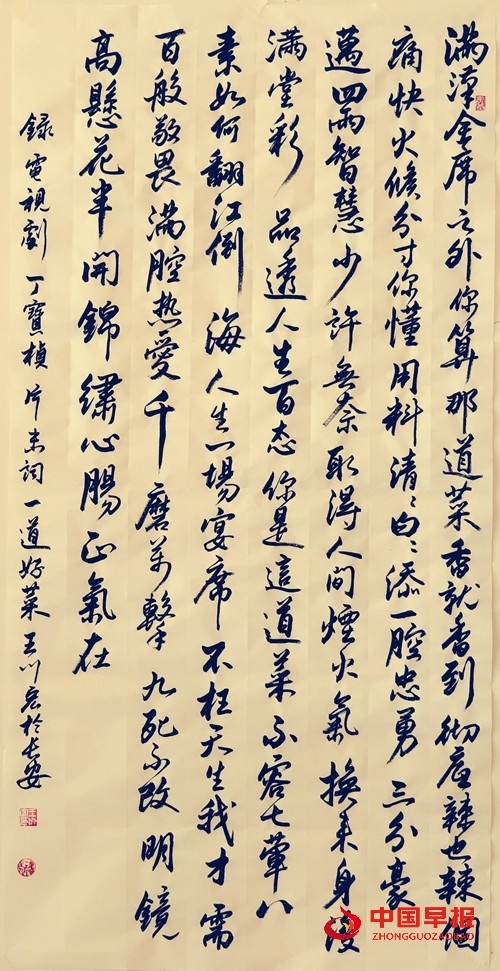 滿漢全席之外你算那道菜香就香到彻底辣也辣個
痛快火候分寸你懂用料清〻白〻添一腔忠勇三分豪
邁四兩智慧少許無奈取得人間煙火氣換来身後
满堂彩 品透人生百态你是這道菜不容七葷八
素如何翻江倒海人生一場宴席不枉天生我才需
百般敬畏满腔热愛千磨萬擊九死不改明鏡
高懸花半開錦繡心腸正氣在
録電視劇丁寶楨片末詞一道好菜王川於长安
中国早报
ZHONGGUOZAOBAO